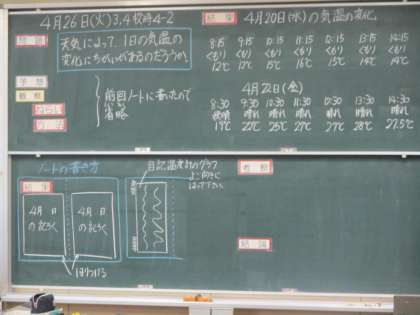 4月26日(火)3,4校時4-2
問題
天気によって、1日の気温の
変化にちがいがあるのだろうか。
予想
観察
前回ノートに書いたので
省略
結果
4月20日(水)の気温の変化
8:15 9:15 10:15 11:15 12:15 13:15 14:15
くもり くもり くもり くもり くもり くもり くもり
12℃ 12℃ 15℃ 16℃ 15℃ 14℃ 14℃
4月22日(金)
8:30 9:30 10:30 11:30 12:30 13:30 14:30
晴れ 晴れ 晴れ 晴れ 晴れ 晴れ
19℃ 22℃ 25℃ 27℃ 27℃ 28℃ 27.5℃
ノートの書き方
結果
4月 日
の記ろく
4月 日
の記ろく
はりつける
自記温度計のグラフ
よこ向きに
はって下さい
考察
結論